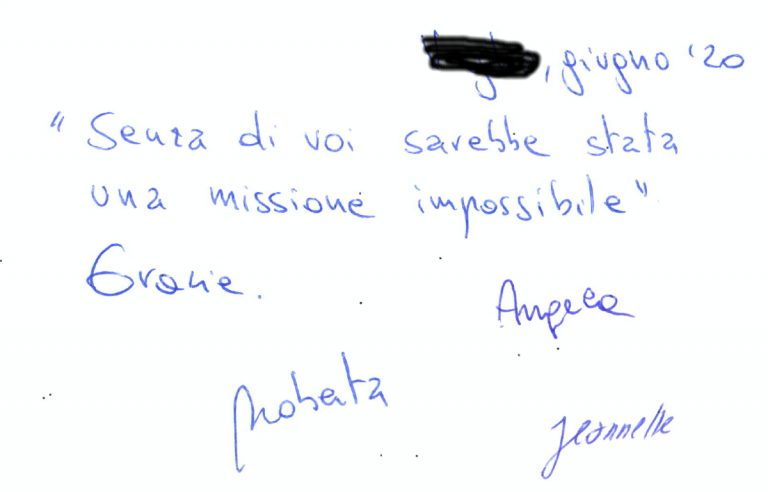 , giugno '20
"Senza di voi sarebbe stata
una missione impossibile"
Grazie.
Angela
Roberta
Jeannette